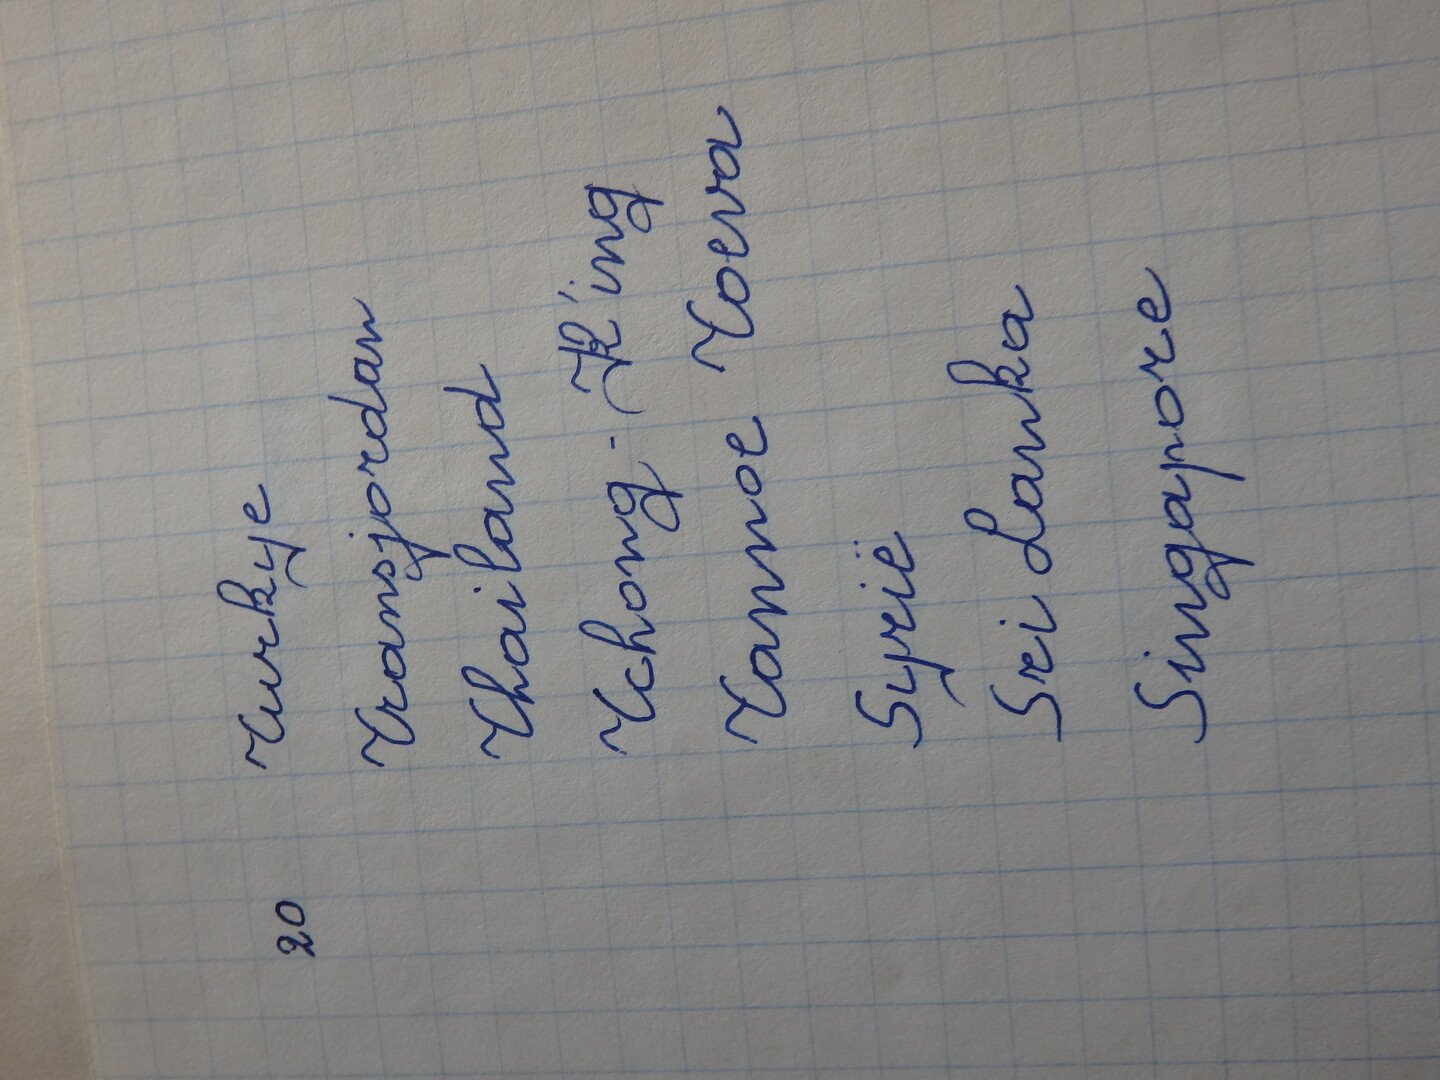 20 Turkye
Transjordan
Thailand
Tchong-K'ing
Tannoe Toeva
Syrië
Sri Lanka
Singapore